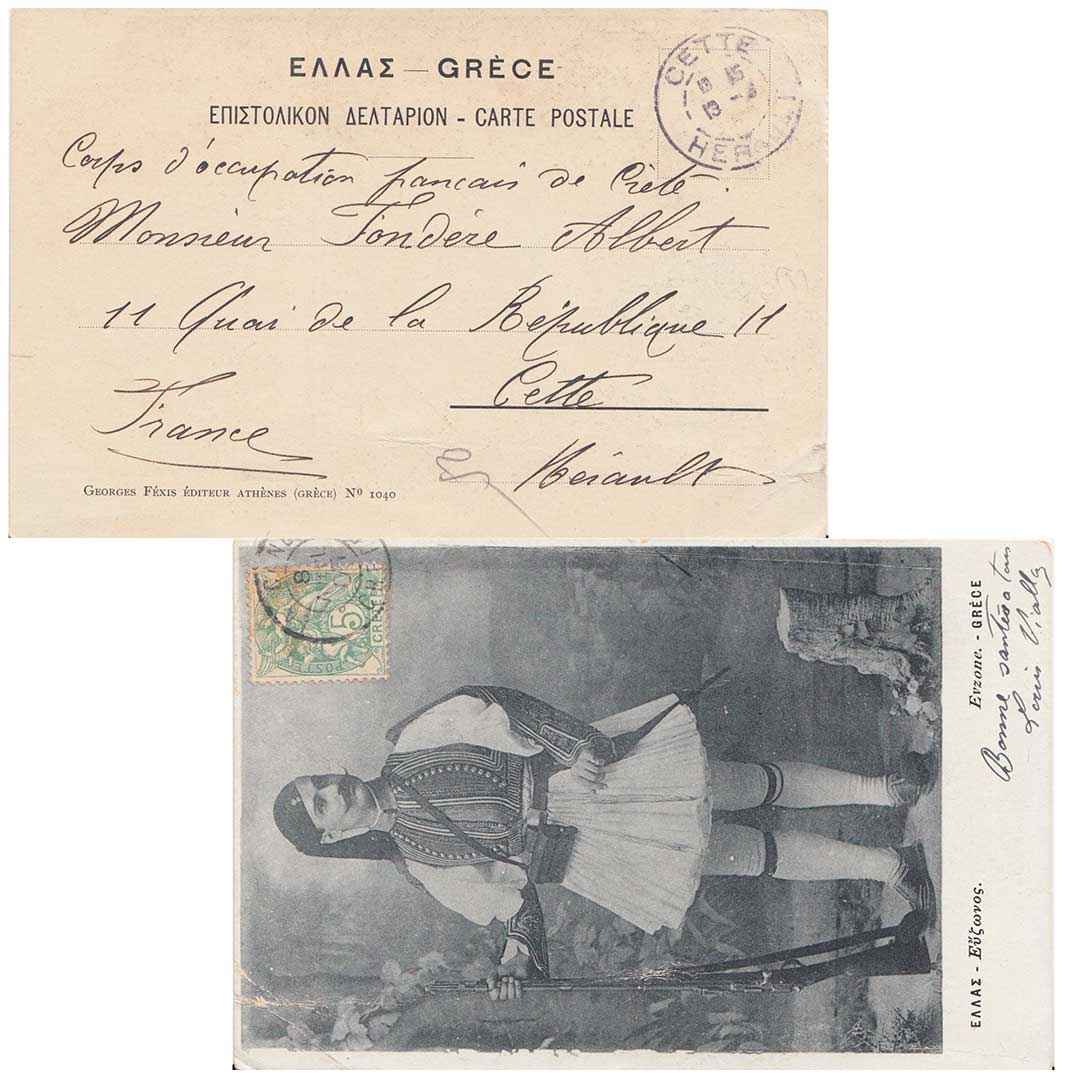 ΕΛΛΑΣ — GRÈCE
ΕΠΙΣΤΟΛΙΚΟΝ ΔΕΛΤΑΡΙΟΝ - CARTE POSTALE
CETTE
HERAULT
Corps d'occupation francais de Crète.
Monsieur Fondère Albert
11 Quai de la République 11
Cette
France
Hérault
GEORGES FÉXIS ÉDITEUR ATHÈNES (GRÈCE) Nº 1040
5c
POSTES
CRETE
ΕΛΛΑΣ - Εὔζωνος.
Evzone. - GRÈCE
Bonne santée a tous
Louis Vialla